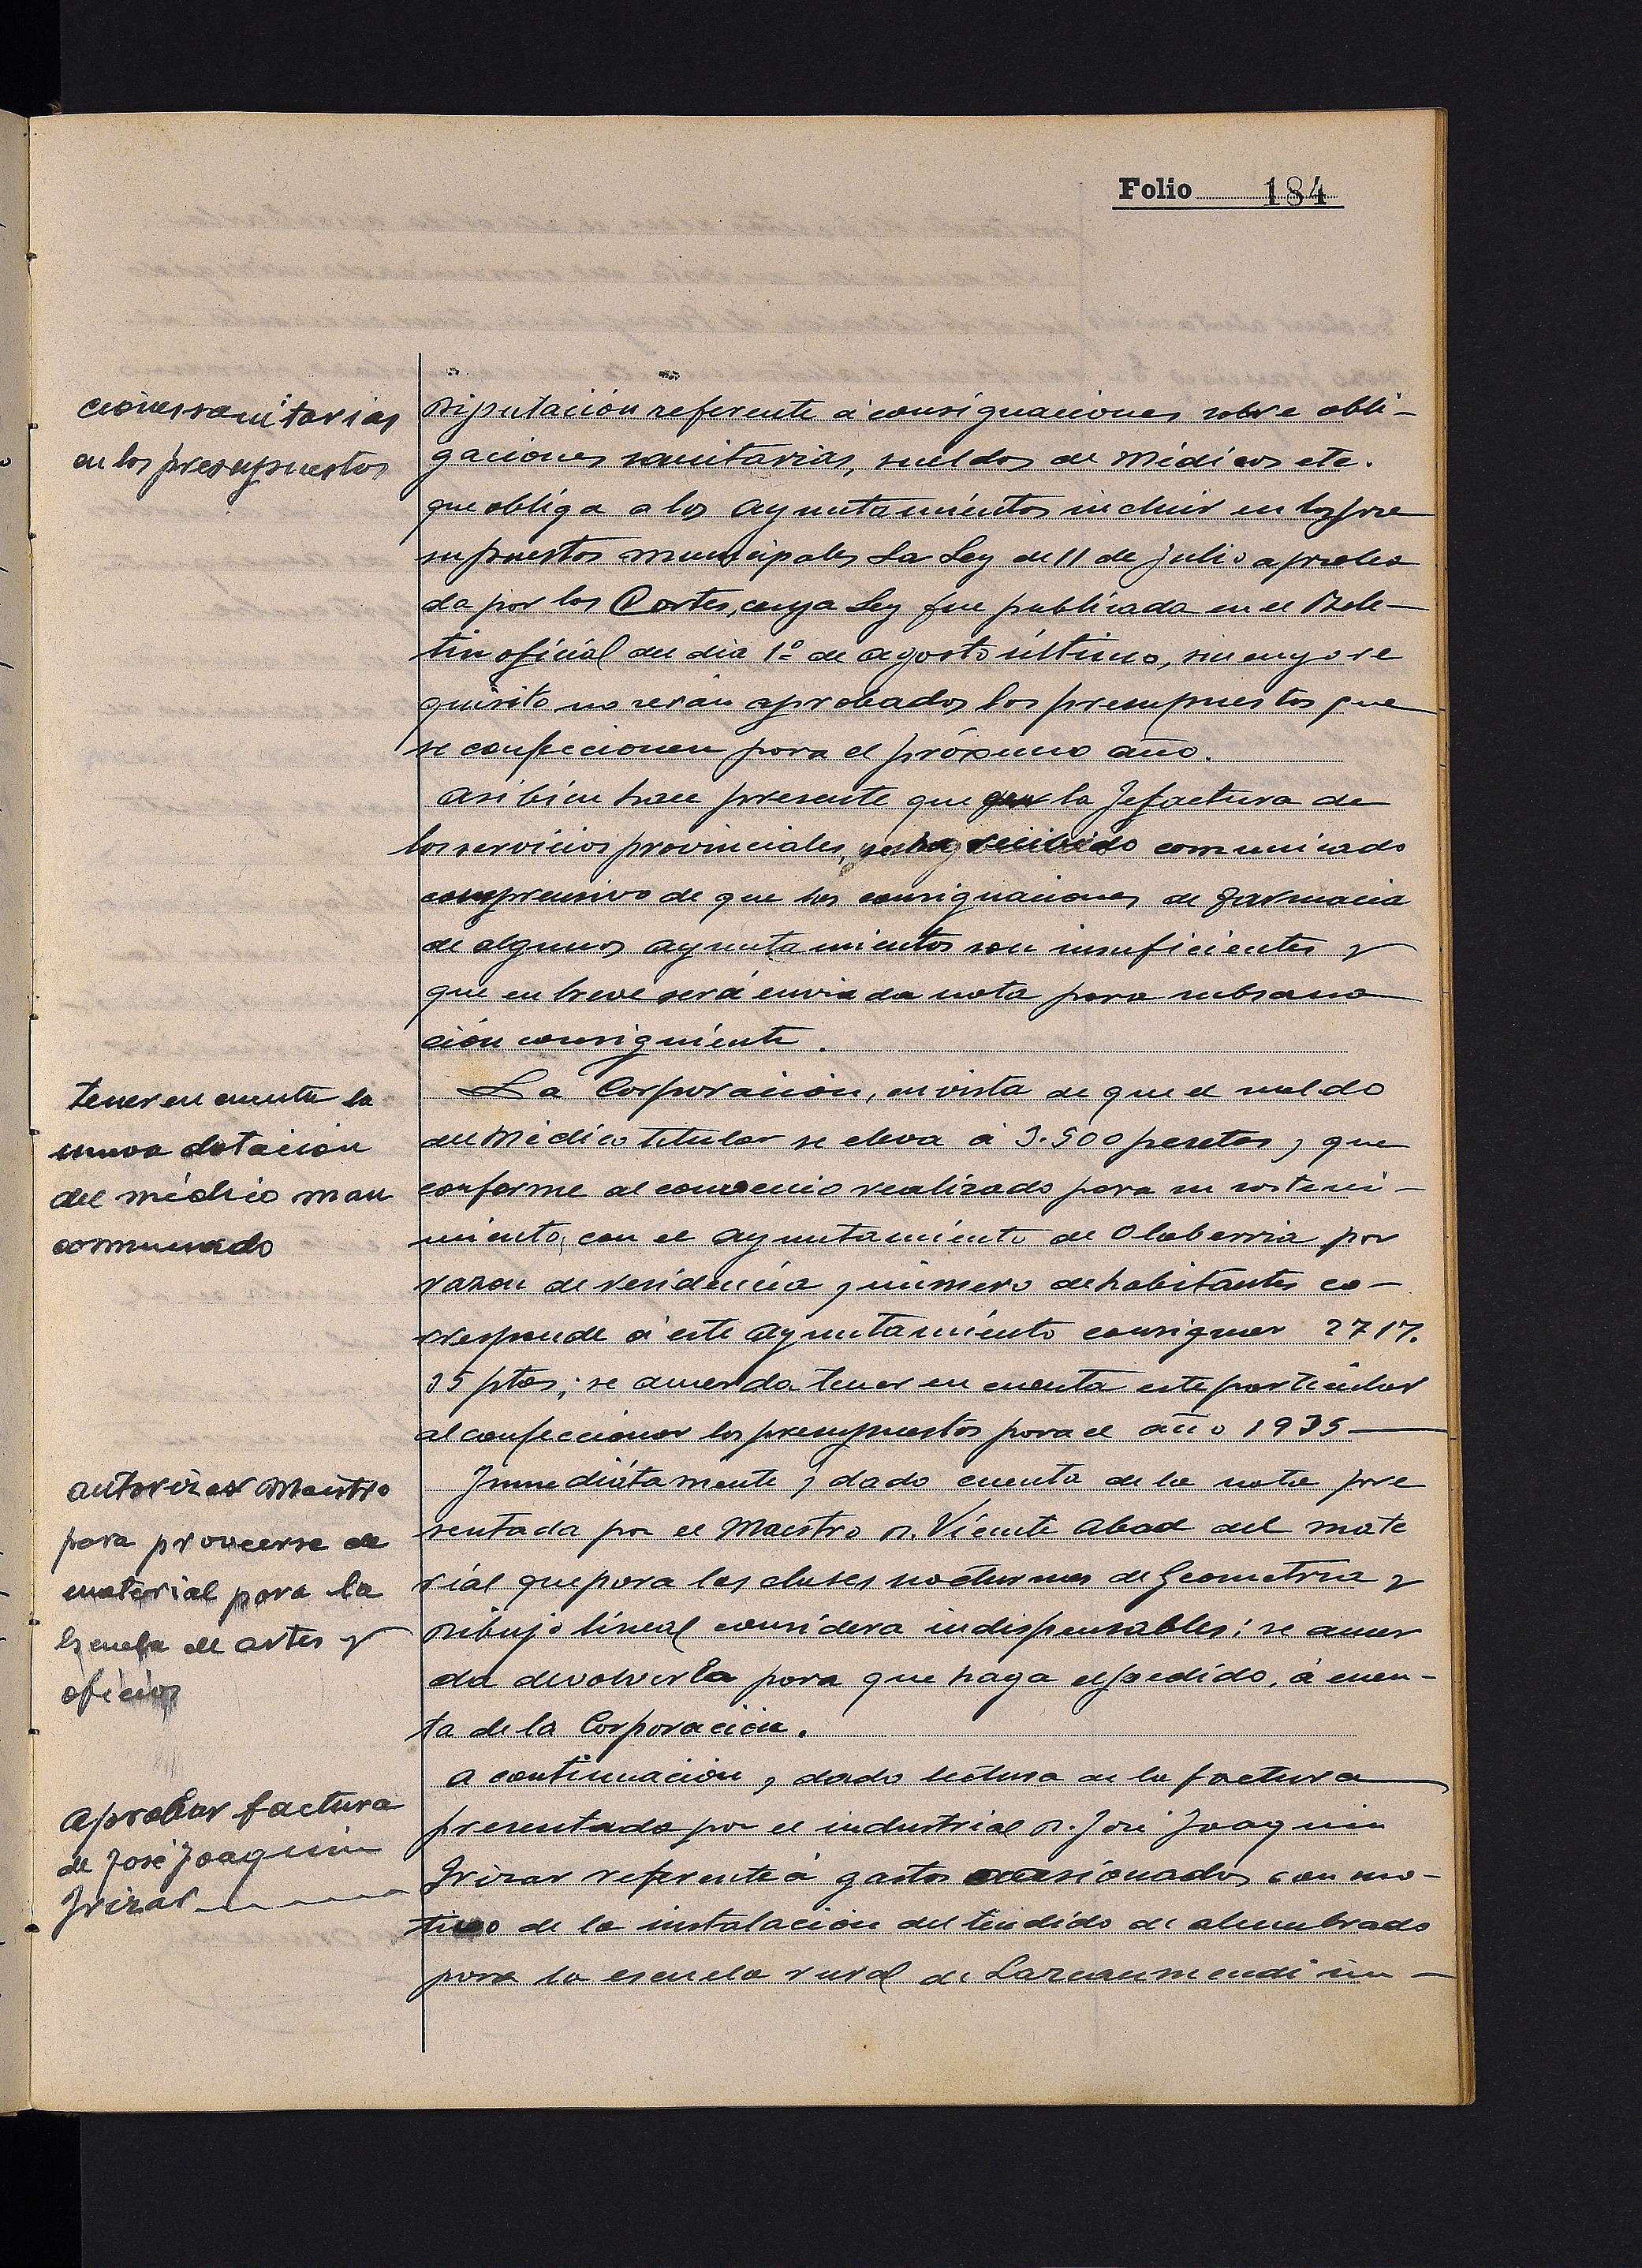 Folio 184
ciones sanitarias
en los presupuestos
Diputación referente á consignaciones sobre obli-
gaciones sanitarias, sueldos de Médicos etc.
que obliga a los Ayuntamientos incluir en los pre
supuestos municipales La Ley de 11 de Julio aproba
da por las Cortes, cuya Ley fue publicada en el Bole-
tin oficial del dia 1º de agosto último, sin cuyo re
quisito no serán aprobados los presupuestos que
se confeccionen para el próximo año.
Asi bien hace presente que la Jefactura de
los servicios provinciales, recibido comunicado
comprensivo de que las consignaciones de Farmacia
de algunos Ayuntamientos son insuficientes y
que en breve será enviada nota para subsana
ción consiguiente.
tener en cuenta la
nueva dotación
del médico man
comunado
La Corporación, en vista de que el sueldo
del Médico titular se eleva á 3.500 pesetas, que
conforme al convenio realizado para su sosteni-
miento, con el Ayuntamiento de Olaberria por
razon de residencia y número de habitantes co-
rresponde á este Ayuntamiento consignar 2717.
35 ptas; se acuerda tener en cuenta este particular
al confeccionar los presupuestos para el año 1935
autorizar Maestro
para proveerse de
material para la
Escuela de artes y
oficios
Inmediátamente y dado cuenta de la nota pre
sentada por el Maestro D. Vicente Abad del mate
rial que para las clases nocturnas de Geometria y
Dibujo lineal considera indispensables; se acuer
da devolverla para que haga el pedido, á cuen-
ta de la Corporación.
aprobar factura
de José Joaquin
Irizar
A continuación y dado lectura de la factura
presentada por el industrial D. José Joaquin
Irizar referente á gastos ocasionados con mo-
tivo de la instalación del tendido de alumbrado
para la escuela rural de Lazcaumendi im-